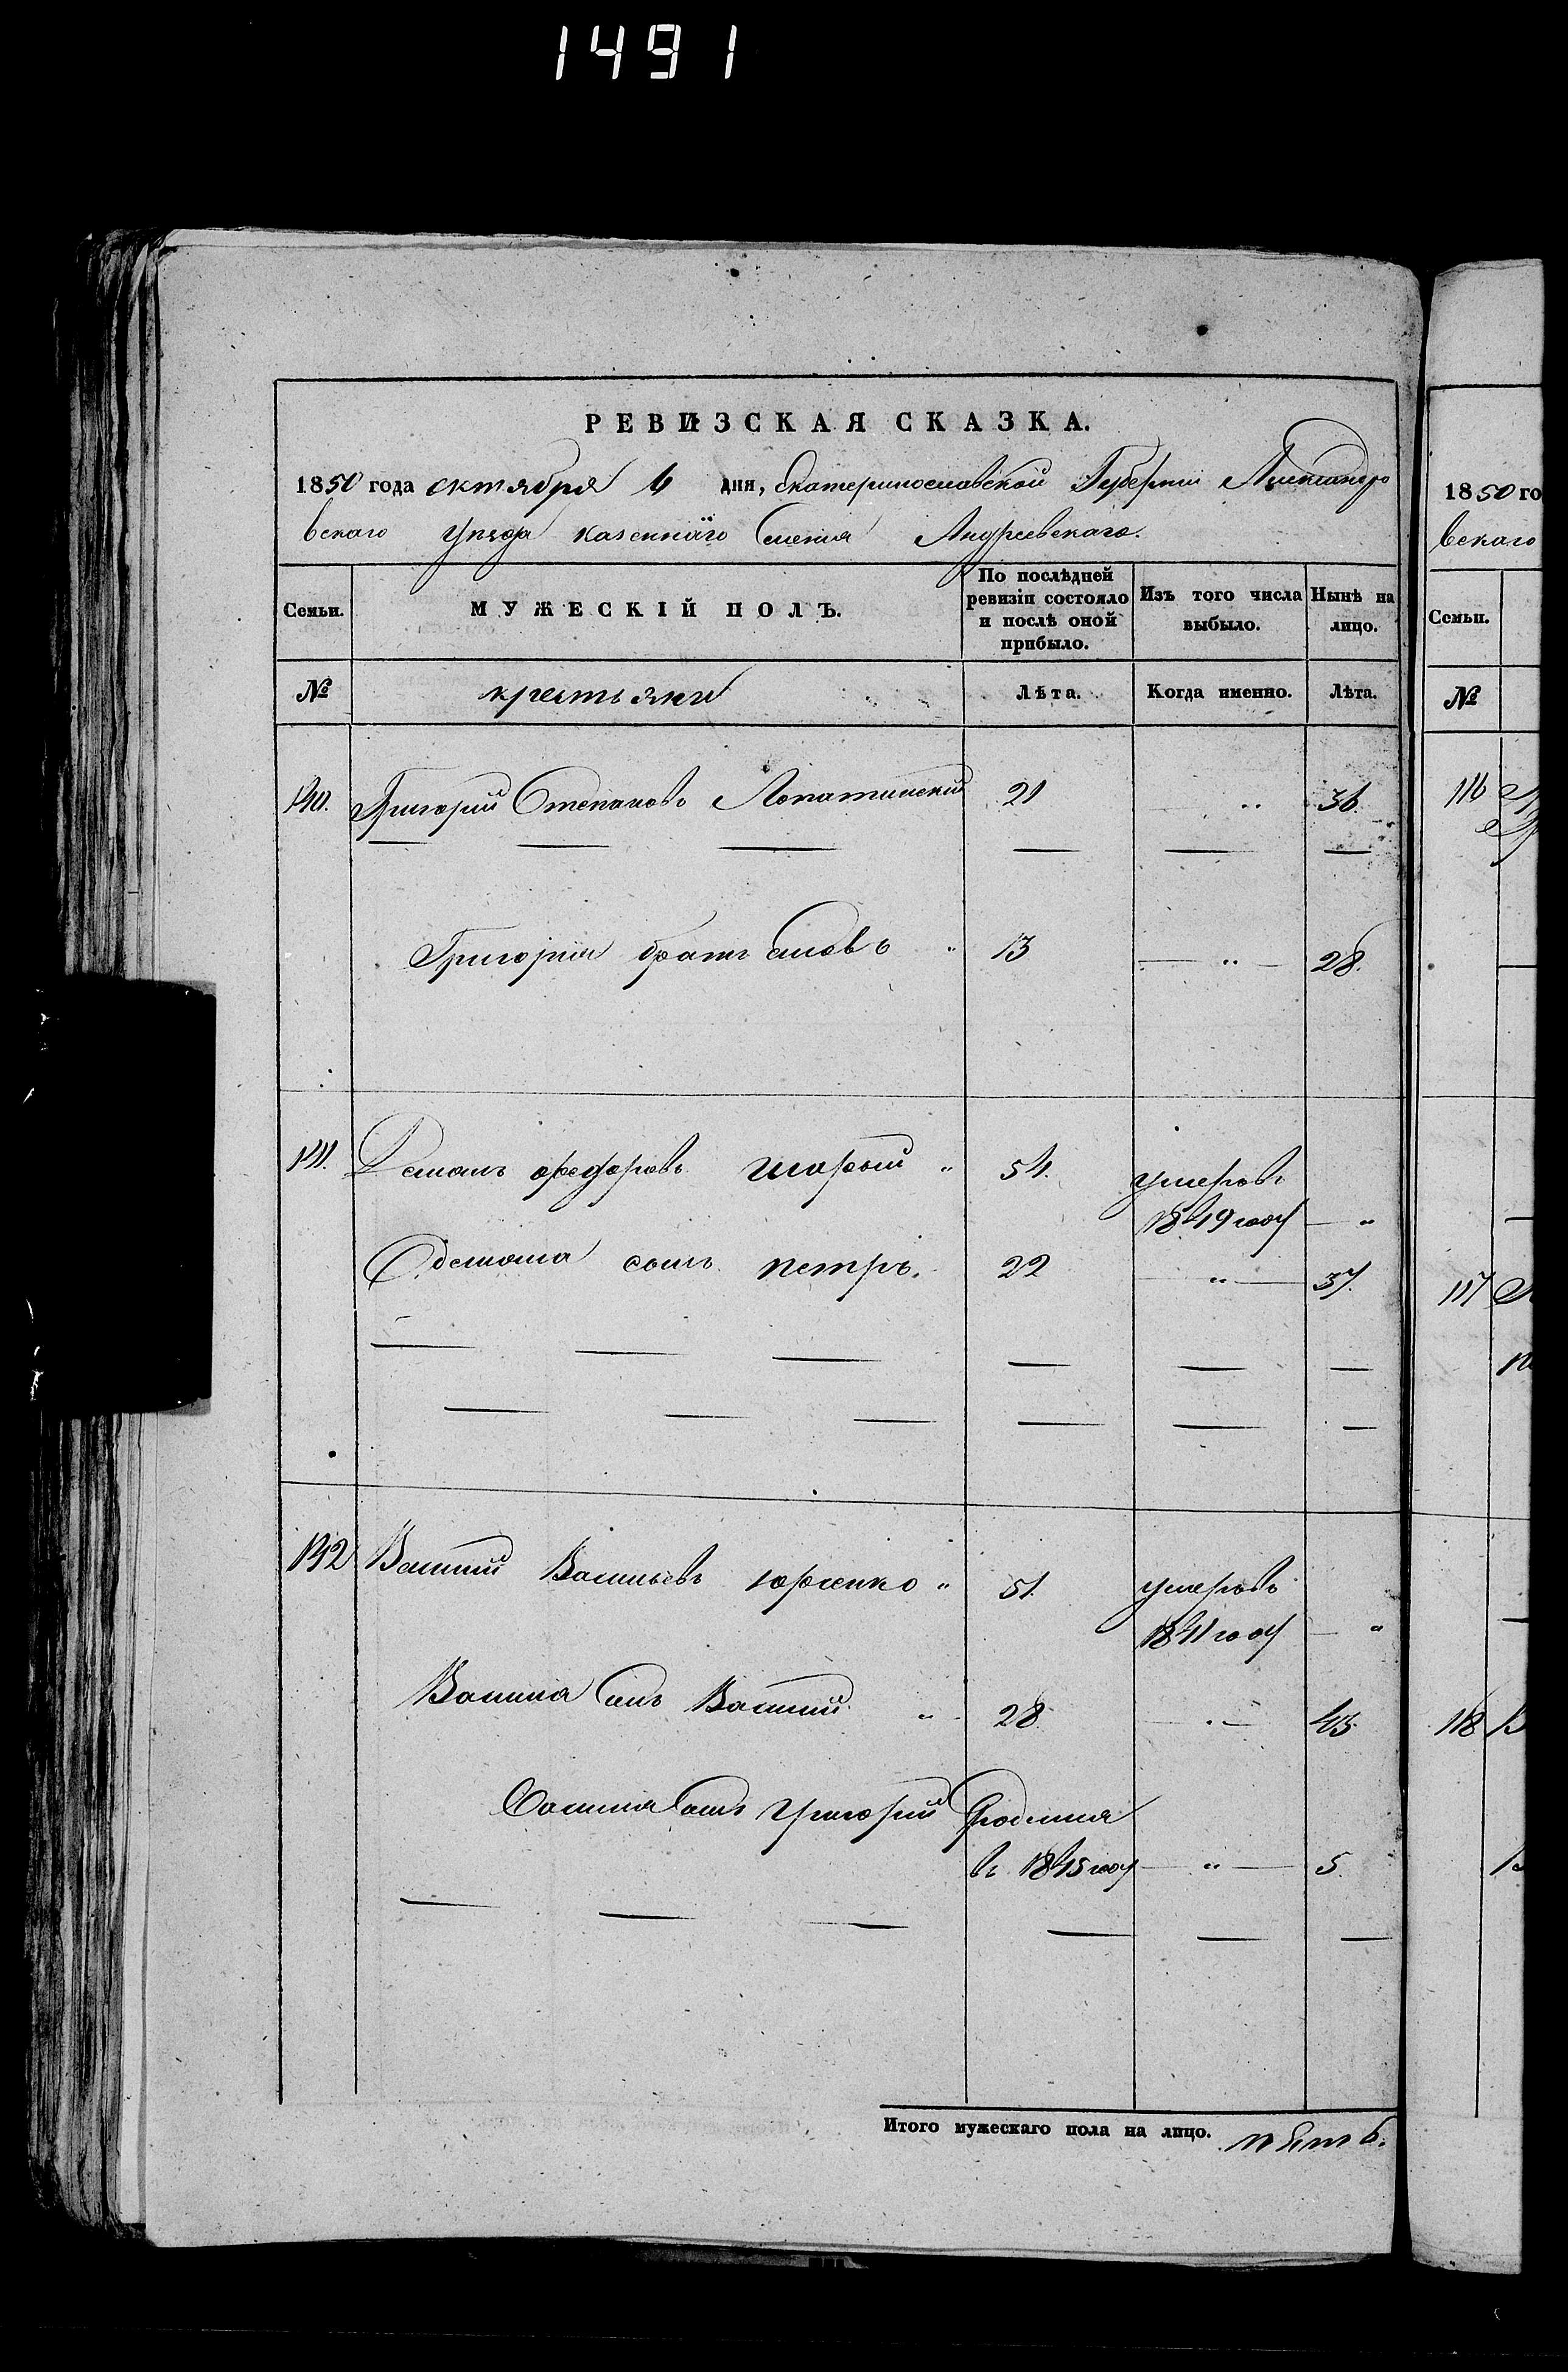 1491
РЕВИЗСКАЯ СКАЗКА.
1850 года октября 6 дня, Екатеринославской Губернии Александро
вскаго Уѣзда казеннаго Селенія Андреевскаго.
Семьи.
МУЖЕСКІЙ ПОЛЪ.
По послѣдней ревизіи состояло и послѣ оной прибыло.
Изъ того числа выбыло.
Нынѣ на лицо.
№ крестьяне Лѣта. Когда именно. Лѣта.
140. Григорий Степановъ Лопатинский 21 " 36.
Григория братъ " 13 " 28.
141. федоровъ " 54. умеръ въ
1849 году "
сынъ петръ. 22 " 37.
142 Василий Васильевъ юрченко " 51. умеръ въ
1841 году "
Василия сынъ Василий " 28. " 43
Василия сынъ григорий родился
въ 1845 году " 5.
Итого мужескаго пола на лицо. пять.
1850 го
вскаго
Семьи.
№
116
117
118